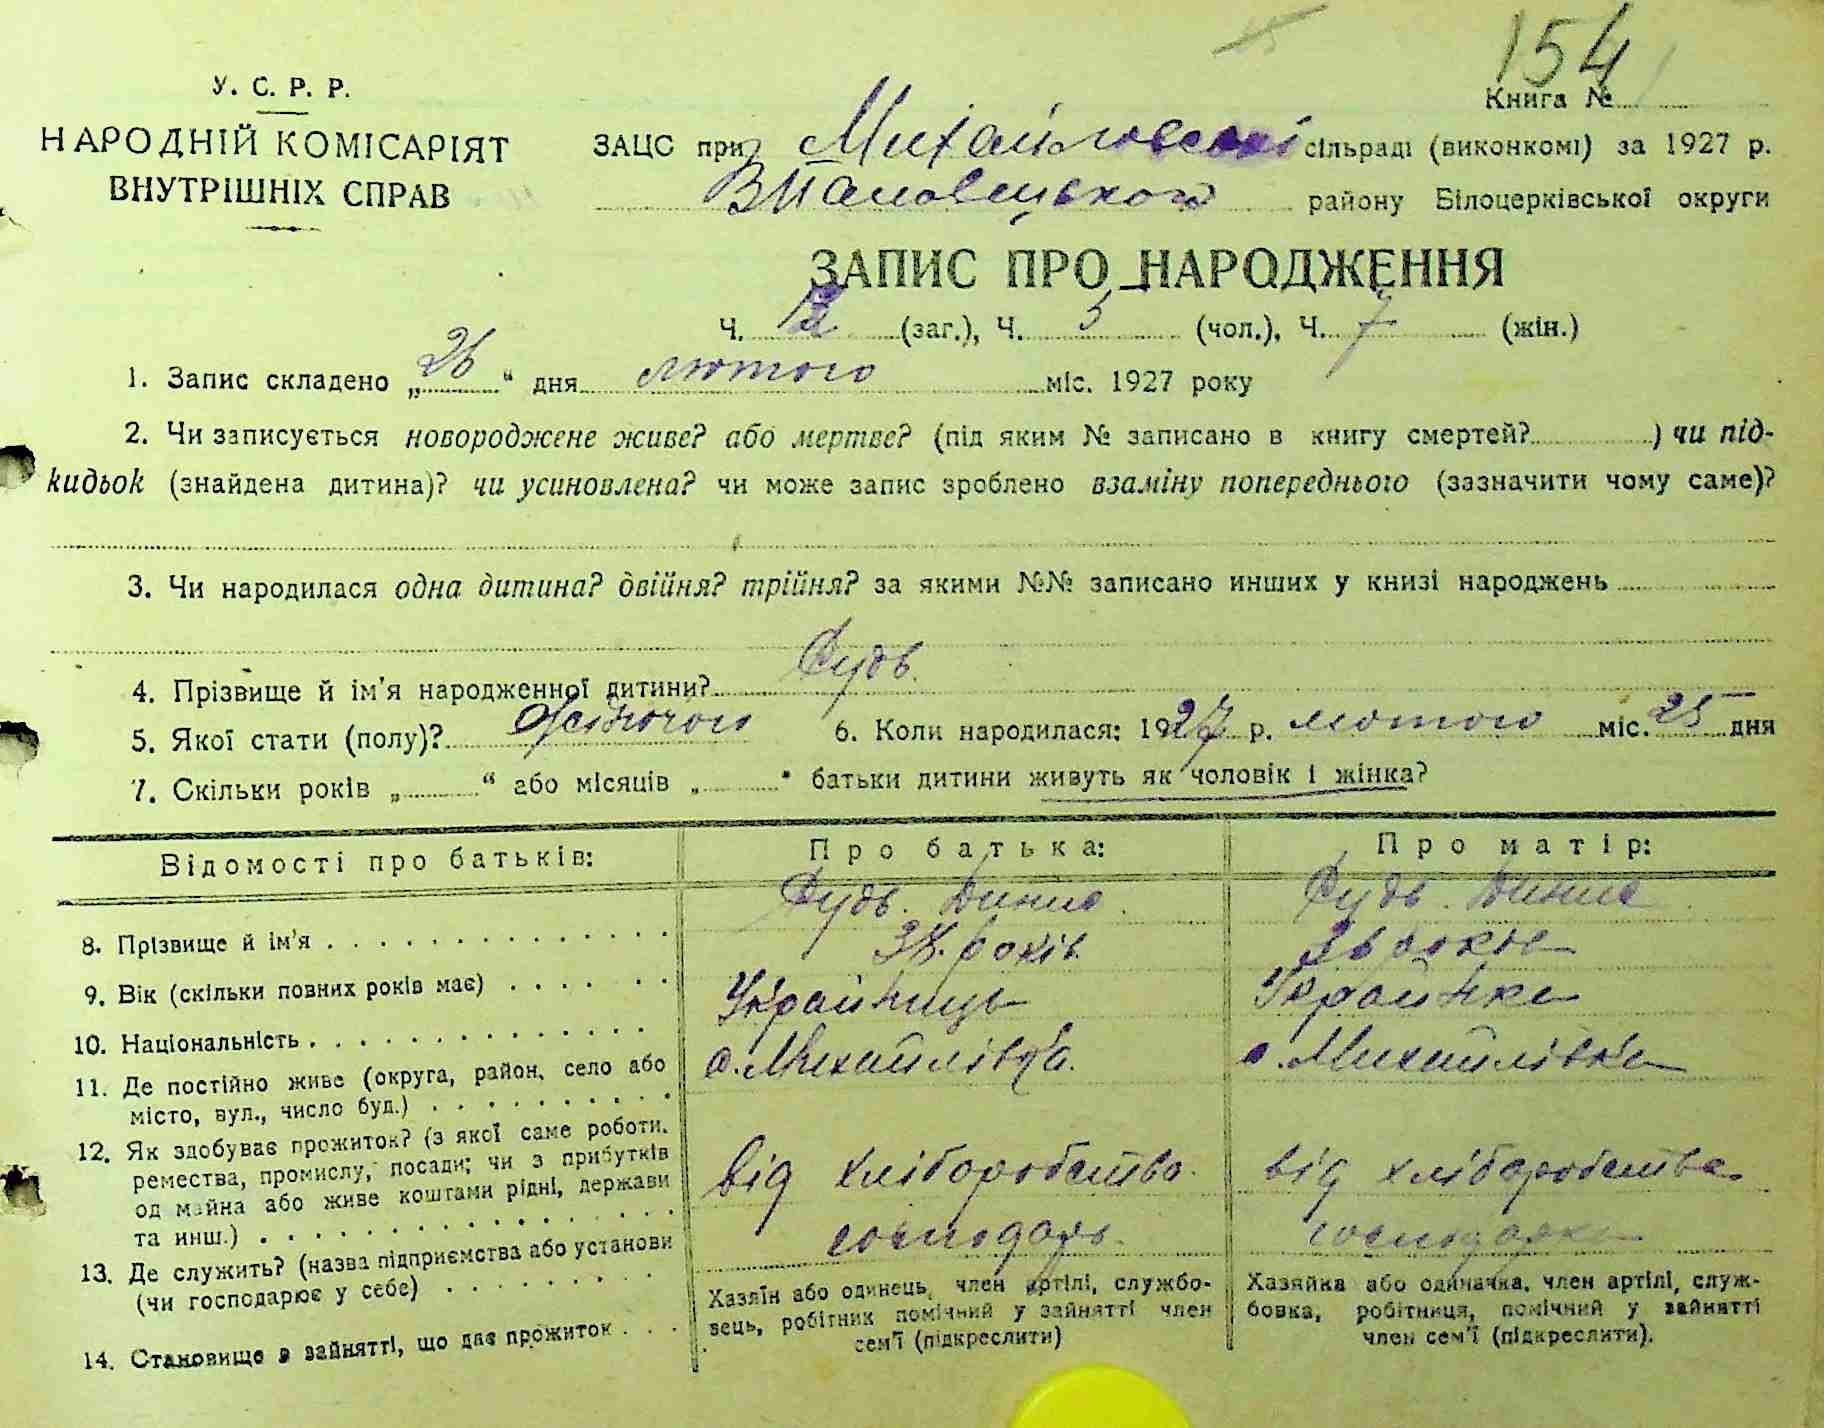 154
У. С. Р. Р.
Книга №
НАРОДНІЙ КОМІСАРІЯТ
ВНУТРІШНІХ СПРАВ
ЗАЦС при Михайловскі сільраді (виконкомі) за 1927 р.
району Білоцерківської округи
ЗАПИС ПРО НАРОДЖЕННЯ
Ч. 12 (заг.), Ч. 5 (чол.), Ч. 7 (жін.)
1. Запис складено „26“ дня лютого міс. 1927 року
2. Чи записується новороджене живе? або мертве? (під яким № записано в книгу смертей? ) чи під-
кидьок (знайдена дитина)? чи усиновлена? чи може запис зроблено взаміну попереднього (зазначити чому саме)?
3. Чи народилася одна дитина? двійня? трійня? за якими №№ записано инших у книзі народжень
4. Прізвище й ім'я народженної дитини? Судь.
5. Якої стати (полу)? жіночого 6. Коли народилася: 1927 р. лютого міс. 25 дня
7. Скільки років „ “ або місяців „ “ батьки дитини живуть як чоловік і жінка?
Відомості про батьків: Про батька: Про матір:
8. Прізвище й ім'я Судь. Судь.
9. Вік (скільки повних років має) років
10. Національність Українець Українка
11. Де постійно живе (округа, район, село або с. Михайлівка. с. Михайлівка
місто, вул., число буд.)
12. Як здобуває прожиток? (з якої саме роботи,
ремества, промислу, посади; чи з прибутків від хліборобства. від хліборобства.
од майна або живе коштами рідні, держави
та инш.)
13. Де служить? (назва підприємства або установи господарь. господарка
(чи господарює у себе)
14. Становище в зайнятті, що дає прожиток
Хазяїн або одинець, член артілі, службо-
вець, робітник помічний у зайнятті член
сем'ї (підкреслити)
Хазяйка або одиначка, член артілі, служ-
бовка, робітниця, помічний у зайнятті
член сем'ї (підкреслити).